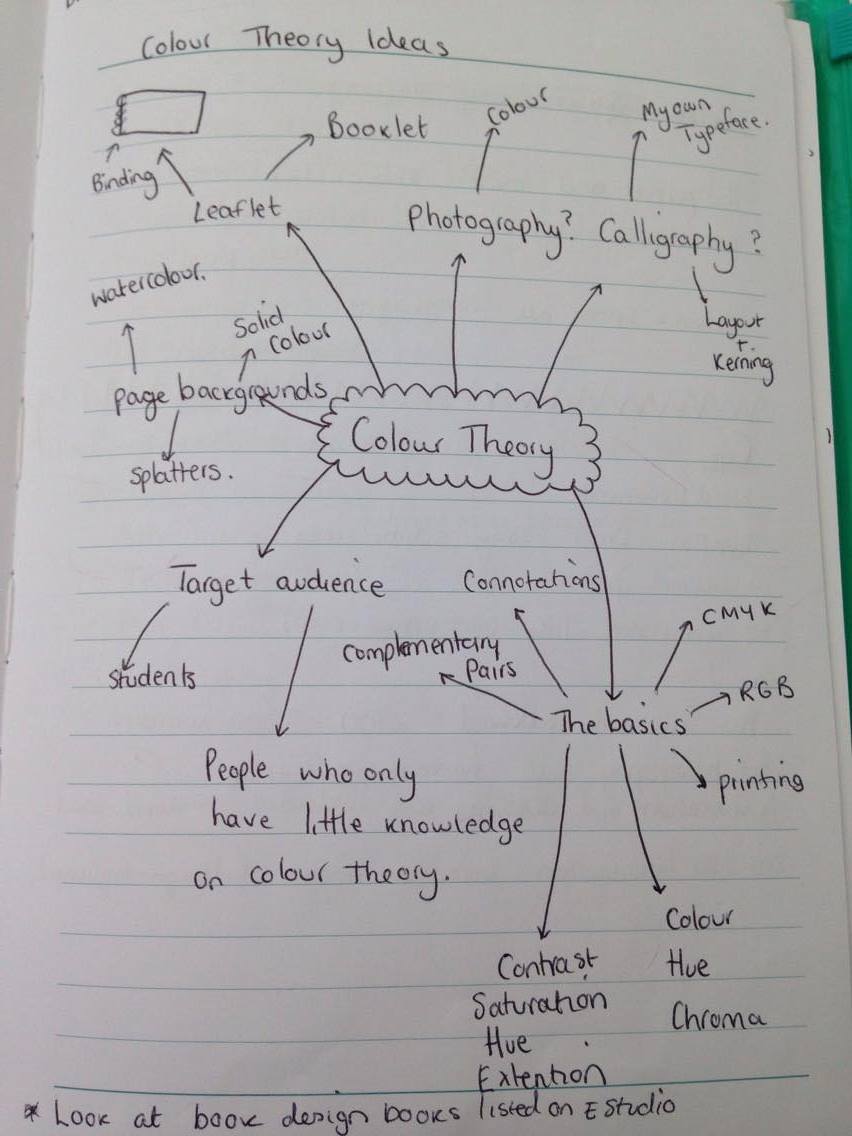 Colour Theory Ideas
Binding
Leaflet
Booklet
Colour
Photography?
My own
Typeface.
Calligraphy?
Layout
+
Kerning
watercolour.
Solid
Colour
page backgrounds
Splatters.
Colour Theory
Target audience
Students
People who only
have little knowledge
on colour theory.
Connotations
Complementary
Pairs
The basics
CMYK
RGB
printing
Contrast
Saturation
Hue
Extention
Colour
Hue
Chroma
* Look at book design books listed on Estudio